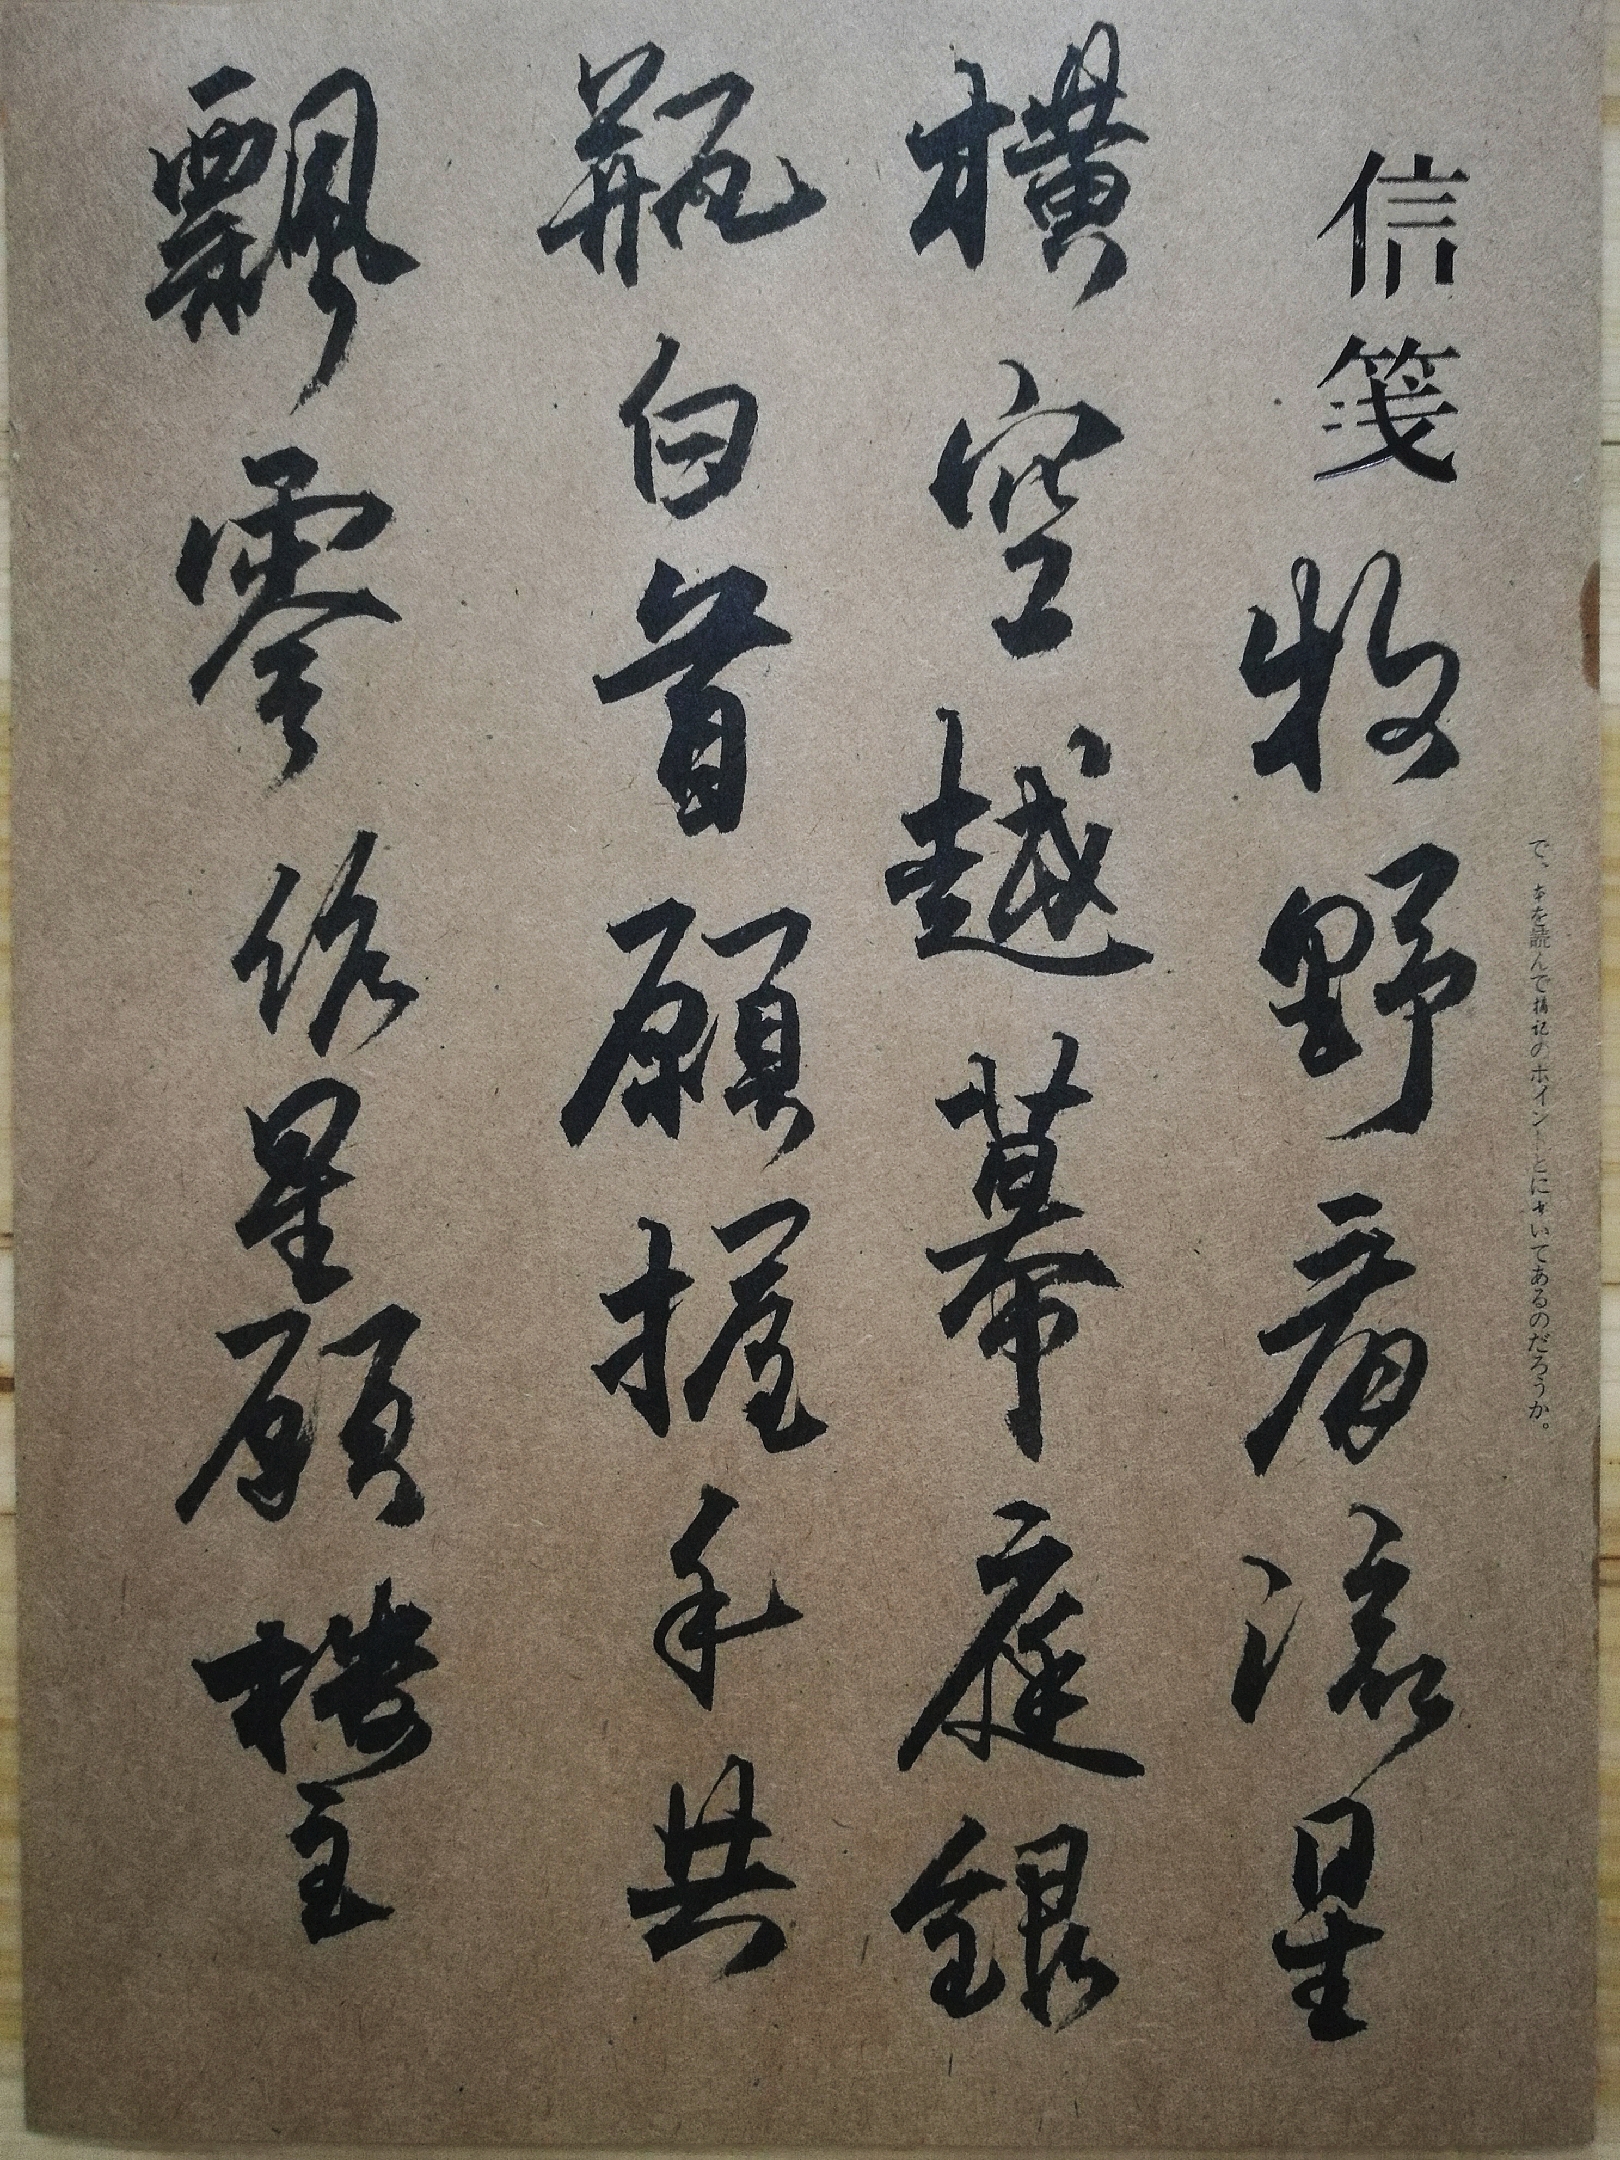 で、本を読んで のポイントとに いてあるのだろうか。
信箋
牧野看流星
橫空越幕庭銀
瓶白首願握手共
飄零 星願樓主